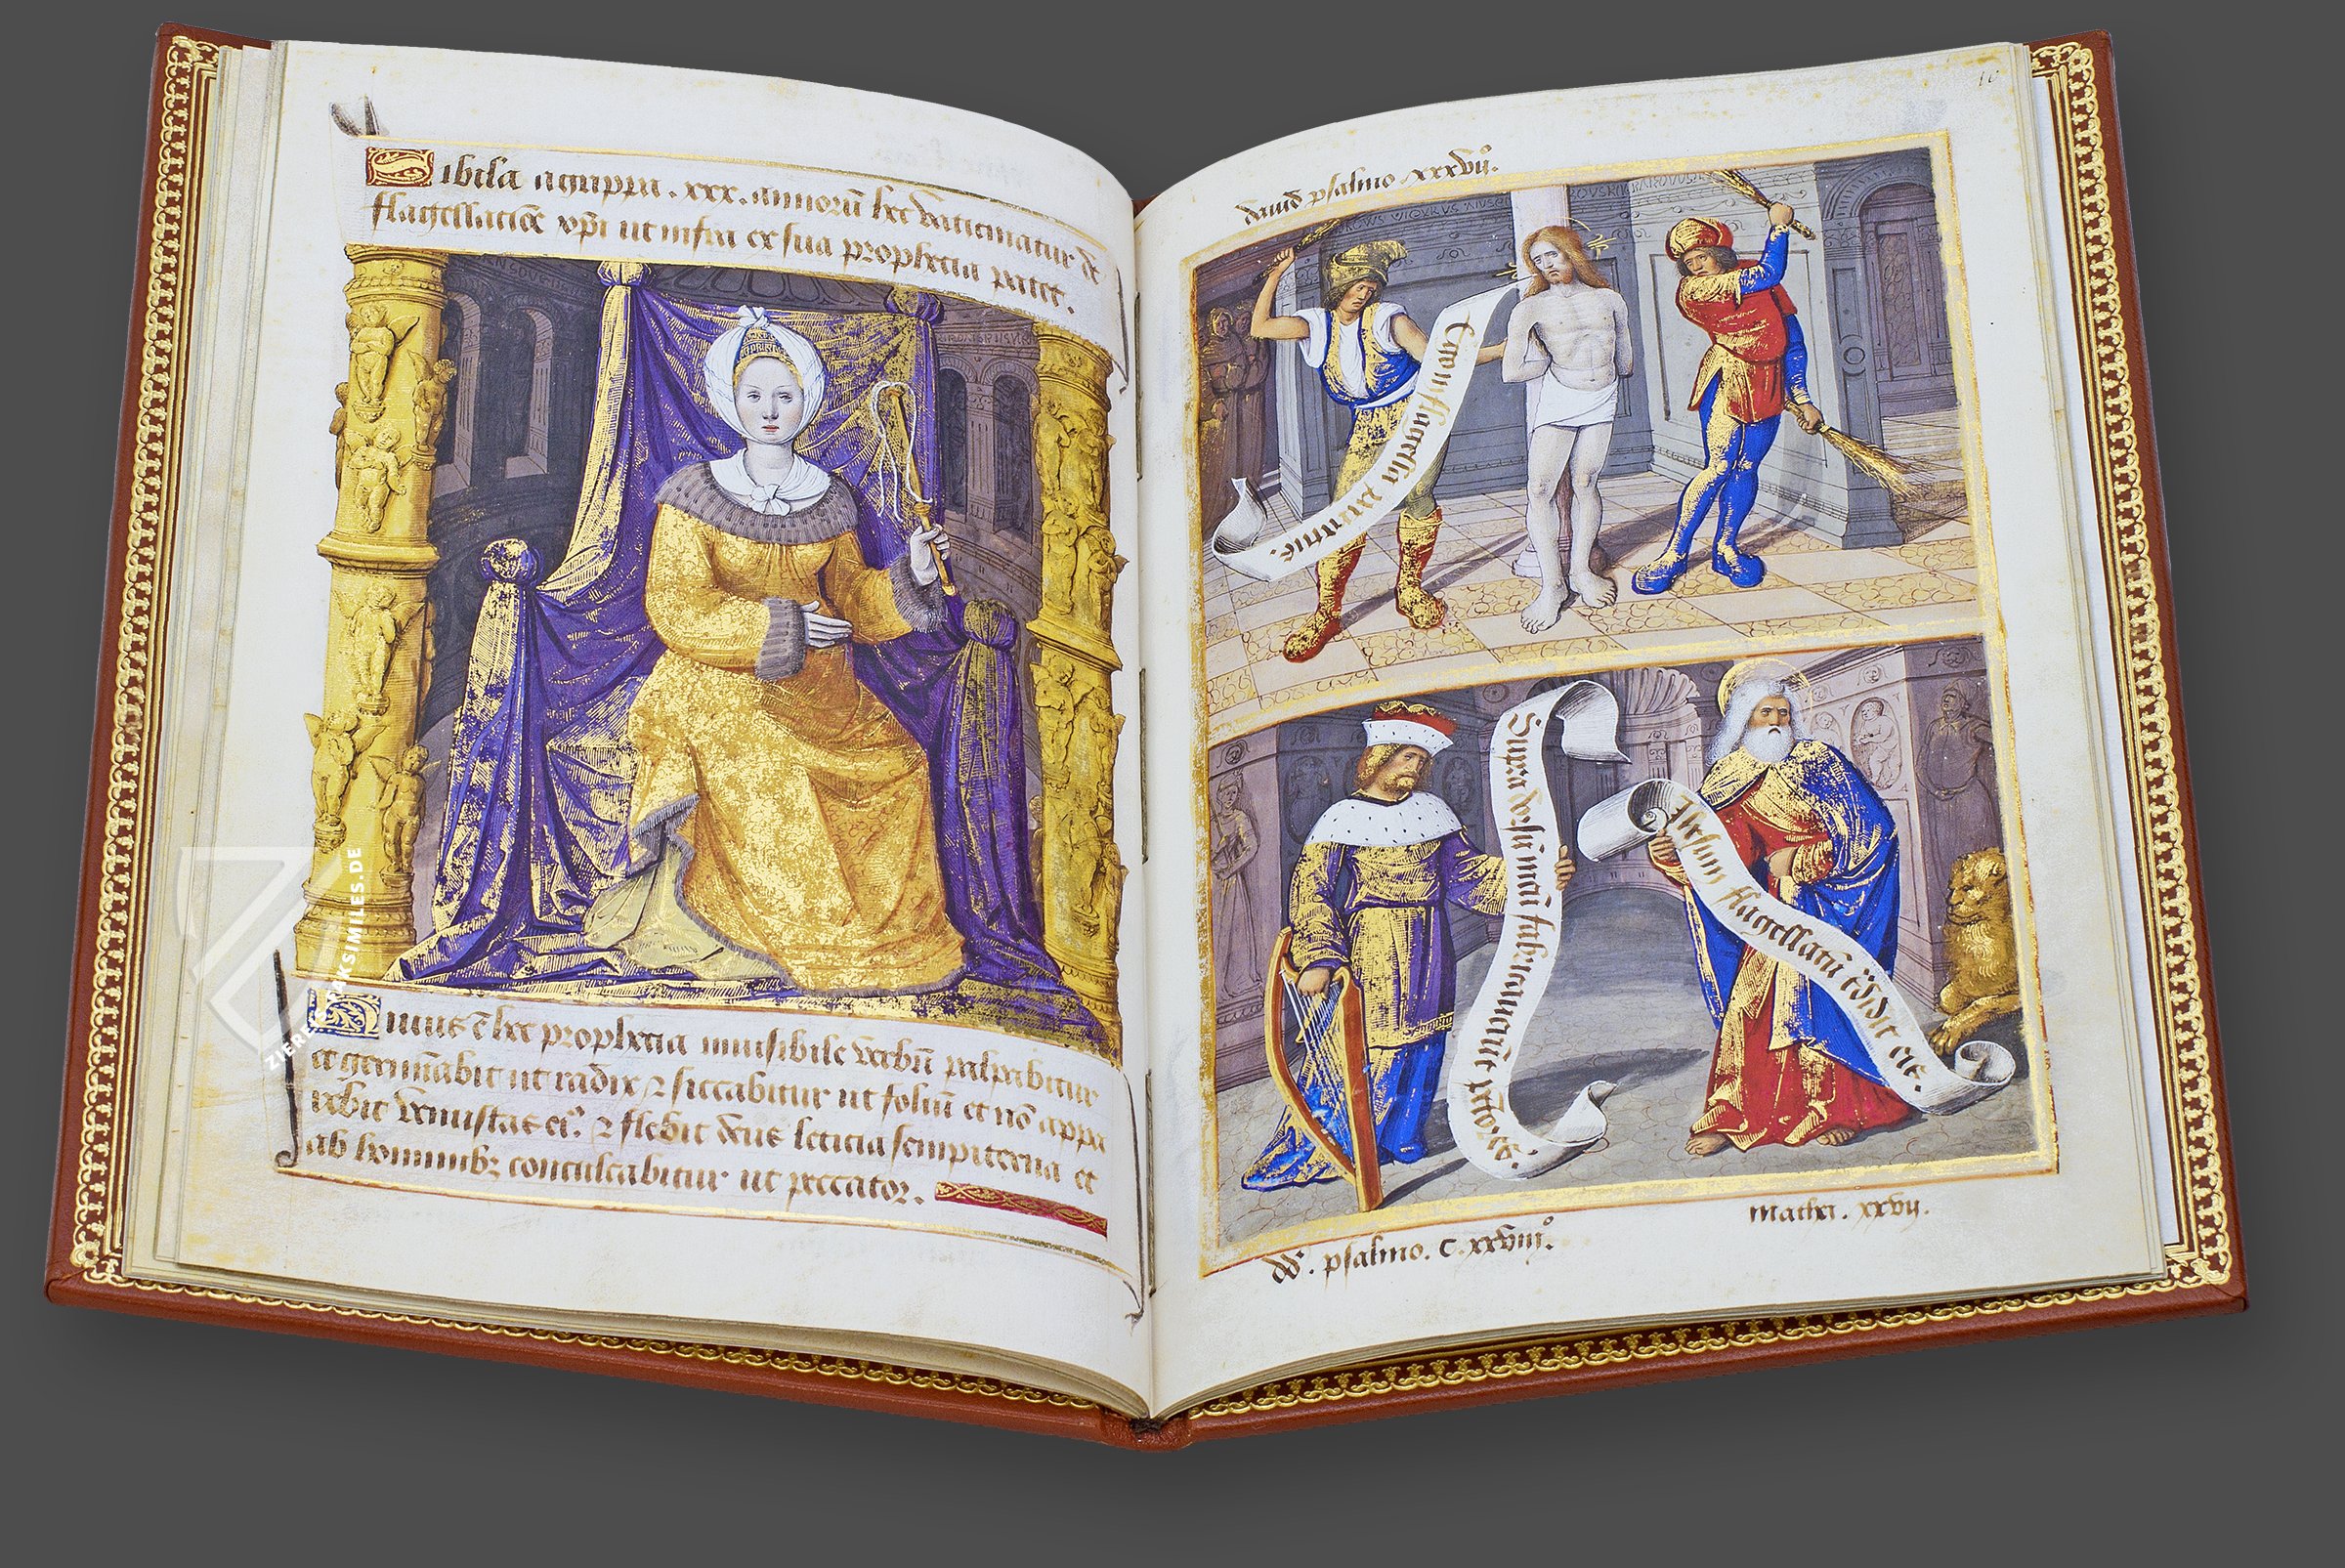 Sibila agrippa .xxx. annorū hec vaticinatur de
flagellatiōe xp̄i ut infra ex sua prophecia patet.
Huius ē hec prophecia invisibile verbū palpabitur
et germīabit ut radix ⁊ siccabitur ut foliū et nō appa
rebit venustas ei⁹ ⁊ flebit deus leticia sempiterna et
ab hominibꝫ conculcabitur ut peccator.
david psalmo xxxvijº.
Ego in flagella
Supra dorsū meū fabricaverūt p̄c̄cōres.
Ihesum flagellatū t̄d̄dit eis.
dd̄. psalmo. C.xxviijº.
Mathei. xxvij.
10
ZIEREIS FAKSIMILES.DE